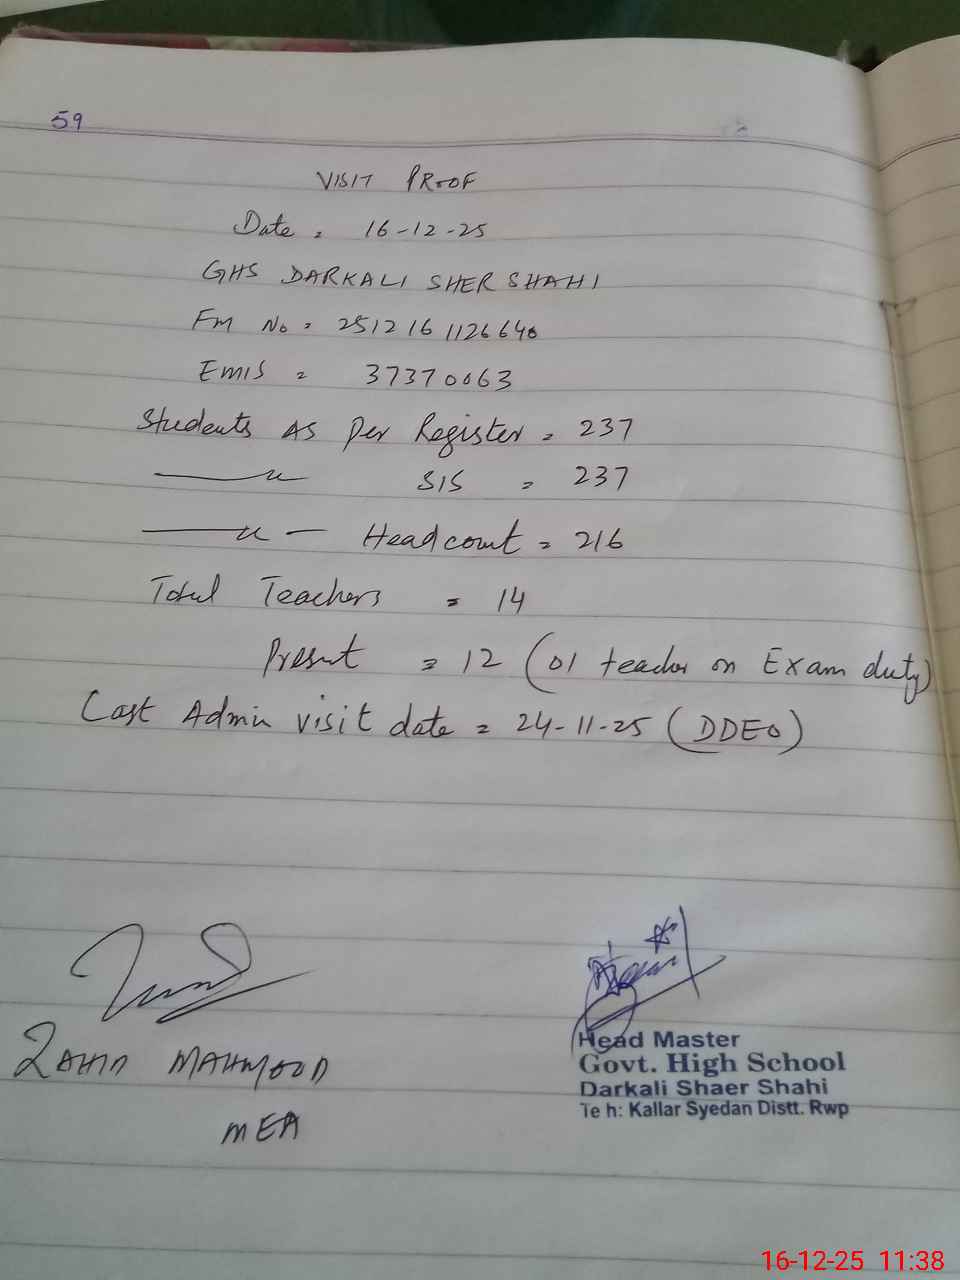 59
VISIT PROOF
Date = 16-12-25
GHS DARKALI SHER SHAHI
FM No = 2512161126640
EMIS = 37370063
Students As Per Register = 237
SIS = 237
Headcount = 216
Total Teachers = 14
Present = 12 (01 teacher on Exam duty)
Last Admin visit date = 24-11-25 (DDEO)
ZAHID MAHMOOD
MEA
Head Master
Govt. High School
Darkali Shaer Shahi
Te h: Kallar Syedan Distt. Rwp
16-12-25 11:38